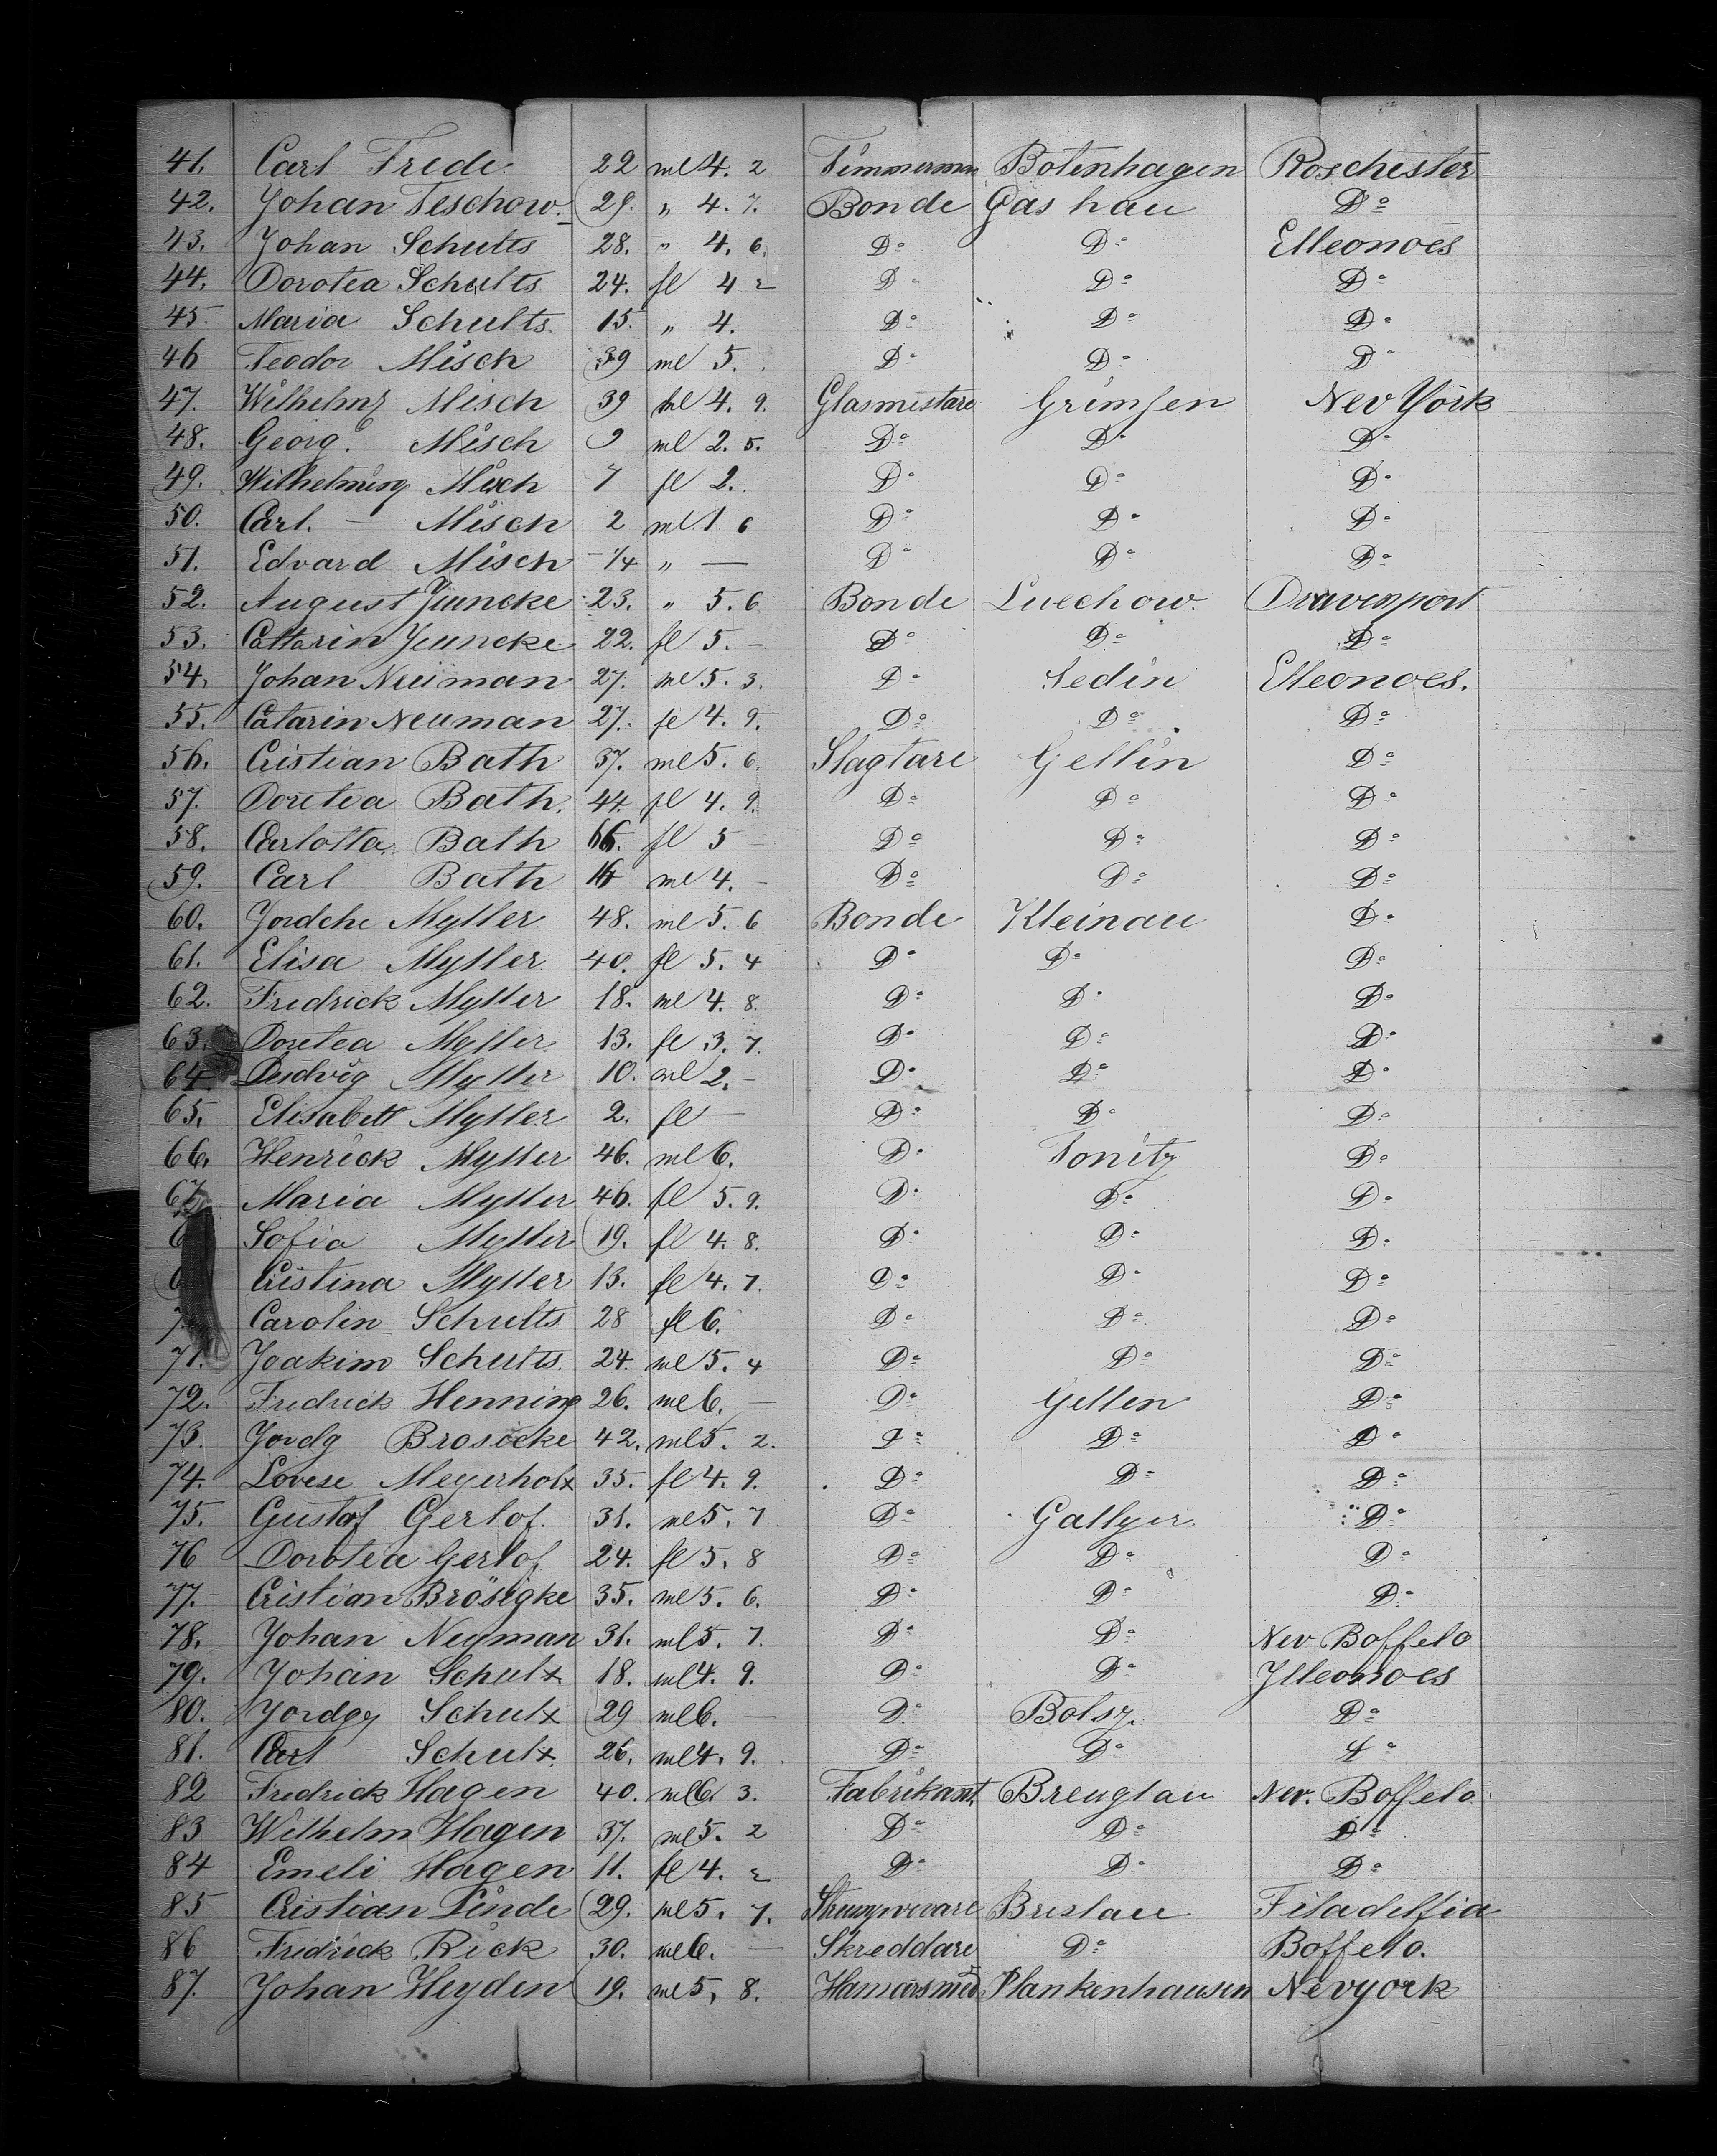 41. Carl Frede 22 ml 4. 2 Timmerman Botenhagen Roschester
42. Johan Teschow 29. „ 4. 7. Bonde Gashau Do
43. Johan Schults 28. „ 4. 6. Do Do Elleonoes
44. Dorotea Schults 24. fl 4 2 Do Do Do
45. Maria Schults. 15. „ 4. Do Do Do
46 Teodor Misch 39 ml 5. Do Do Do
47. Wilhelmg Misch 39 ml 4. 9. Glasmestare Grimsen Nev York
48. Georg. Misch 9 ml 2. 5. Do Do Do
49. Wilhelming Misch 7 fl 2. Do Do Do
50. Carl. – Misch 2 ml 1 6 Do Do Do
51. Edvard Misch – 1/4 „ — Do Do Do
52. August Juncke 23. „ 5. 6 Bonde Luechow. Davenport
53. Cattarin Juncke 22. fl 5. – Do Do Do
54. Johan Neuman 27. ml 5. 3. Do Sedin Elleonoes.
55. Catarin Neuman 27. fl 4. 9. Do Do Do
56. Cristian Bath 37. ml 5. 6. Slagtare Gellin Do
57. Doretea Bath. 44. fl 4. 9. Do Do Do
58. Carlotta Bath 66. fl 5 – Do Do Do
59. Carl Bath 14 ml 4. – Do Do Do
60. Jordche Myller 48. ml 5. 6 Bonde Kleinau Do
61. Elisa Myller 40. fl 5. 4 Do Do Do
62. Fredrick Myller 18. ml 4. 8. Do Do Do
63. Doretea Myller. 13. fl 3. 7. Do Do Do
64 Ludvig Myller 10. ml 2. – Do Do Do
65. Elisabett Myller 2. fl – Do Do Do
66. Henrick Myller 46. ml 6. Do Tonitz Do
67. Maria Myller 46. fl 5. 9. Do Do Do
6 Sofia Myller 19. fl 4. 8. Do Do Do
6 Cristina Myller 13. fl 4. 7. Do Do Do
7 Carolin Schults 28 fl 6. Do Do Do
71. Joakim Schults. 24. ml 5. 4 Do Do Do
72. Fredrick Henning 26. ml 6. – Do Gellen Do
73. Jordg Brosicke 42. ml 5. 2. Do Do Do
74. Lovese Meyerholx 35. fl 4. 9. Do Do Do
75. Gustaf Gerlof. 31. ml 5. 7 Do Gallyer. Do
76 Dorotea Gerlof 24. fl 5. 8 Do Do Do
77. Cristian Brösigke 35. ml 5. 6. Do Do Do
78. Johan Neyman 31. ml 5. 7. Do Do Nev Boffelo
79. Johan Schulx 18. ml 4. 9. Do Do Jlleonoes
80. Jordgy Schulx 29 ml 6. — Do Bolsz. Do
81. Carl Schulx. 26. ml 4. 9. Do Do Do
82 Fredrick Hagen 40. ml 6. 3. Fabrikant. Brenglau Nev. Boffelo.
83 Wilhelm Hagen 37. ml 5. 2 Do Do Do
84 Emeli Hagen 11. fl 4. 2 Do Do Do
85 Cristian Linde 29. ml 5. 7. Strumpvevare Breslau Filadelfia
86 Fridrick Rick 30. ml 6. — Skreddare Do Boffelo.
87. Johan Heyden 19. ml 5, 8. Hamarsmed Plankenhausen Nevyork